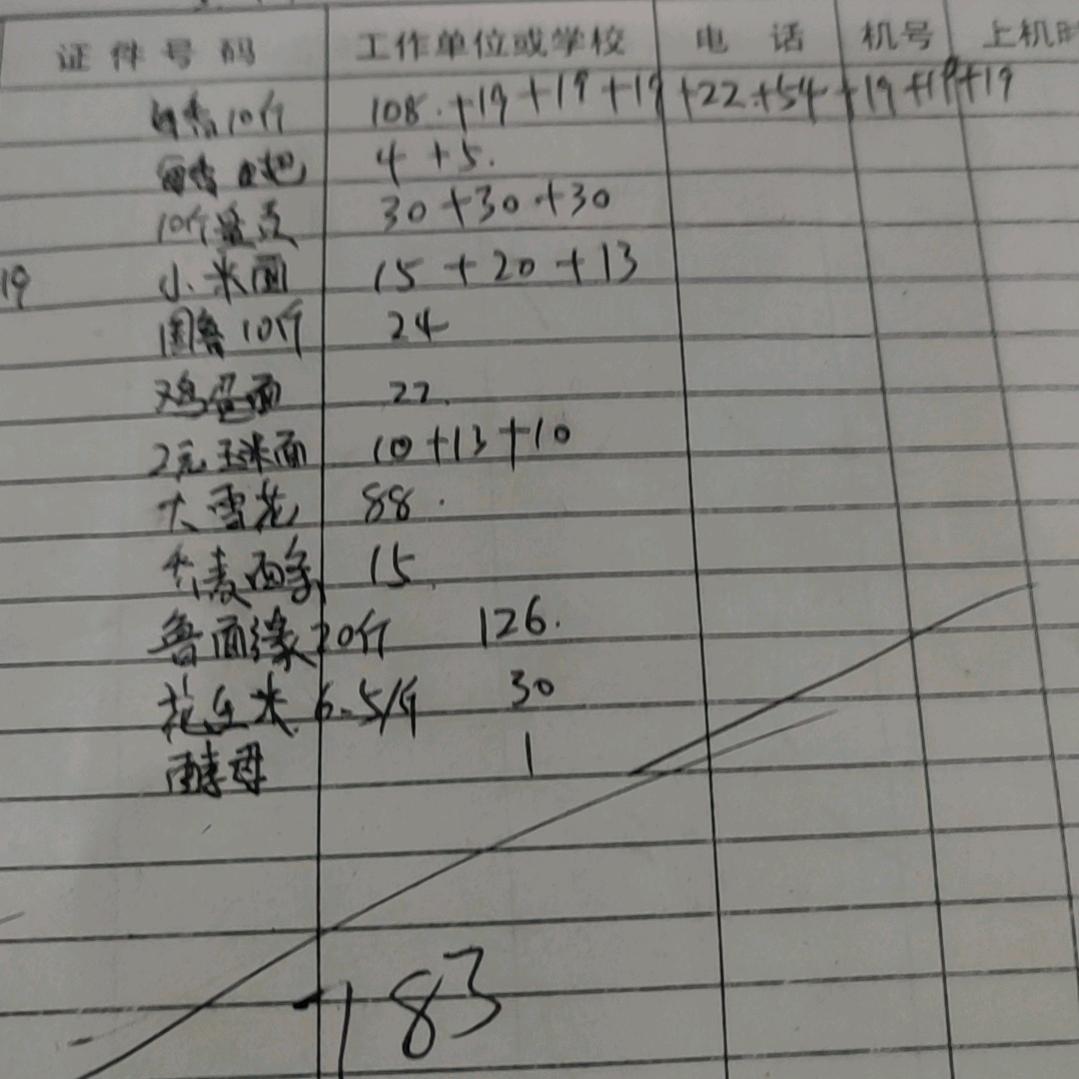 证件号码 工作单位或学校 电话 机号 上机时
10斤 108.+19+19+19+22+54+19+19+19
4+5.
10斤 30+30+30
19 小米面 15+20+13
10斤 24
鸡蛋面 22.
2元玉米面 10+13+10
大雪花 88.
荞麦面条 15
鲁面缘20斤 126.
花生米 6.5/斤 30
酵母 1
783